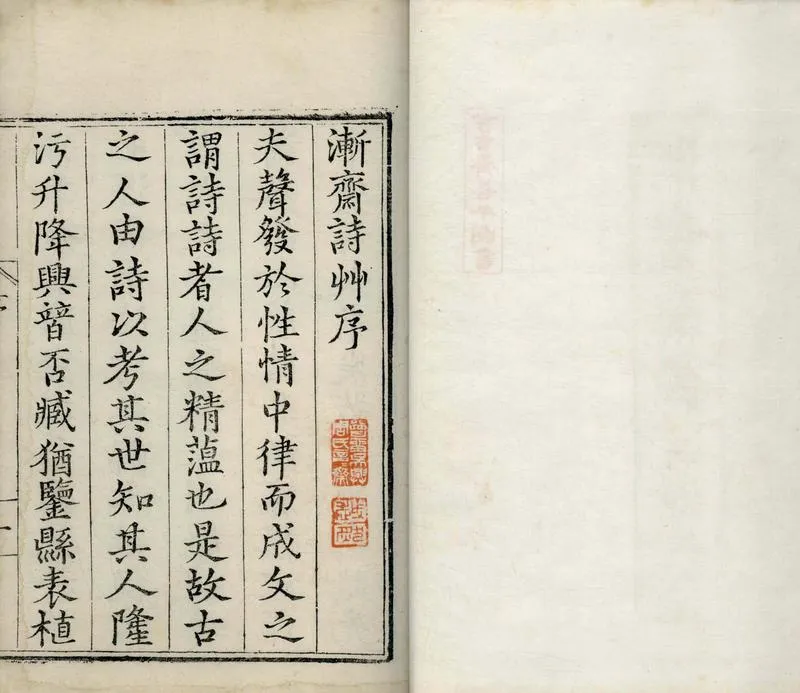 漸齋詩艸序
夫聲發於性情中律而成文之
謂詩詩者人之精薀也是故古
之人由詩以考其世知其人隆
污升降興朁否臧猶鑒縣表植